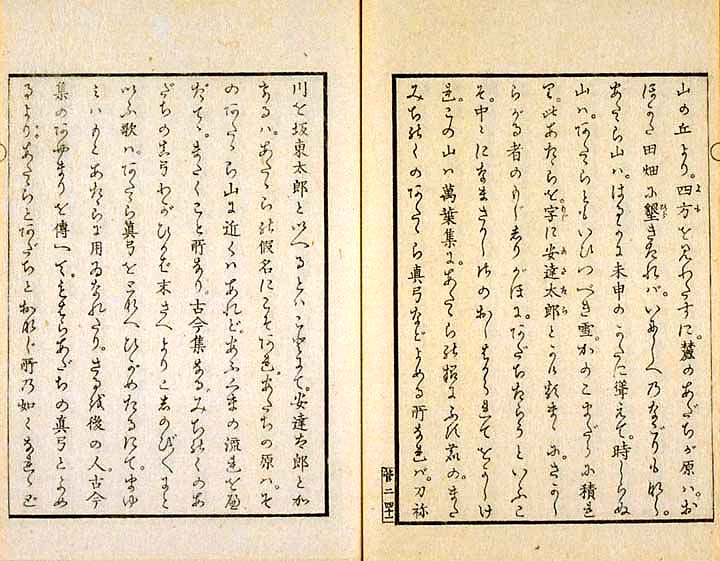 よも
山の丘より。四方を見わたすに。麓のあだちが原ハ。お
ほかた田畑に墾きたれバ。いにしへのなごりもなし。
あだたら山ハ。はるかに未申のかたに聳えて。時しらぬ
山ハ。あだたらともいひつべき雪。かのこまだらに積れ
り。此あだたらを。字に安達太郎とかけるまゝに。さかし
らがる者のもじしりがほに。あだちたらうといふこ
そ。中々になまさかしらのおしはかられてをかしけ
れ。この山ハ萬葉集に。あだたらの招にふす鹿の。また
みちのくのあだたら真弓などよめる所なれバ。刀祢
菅二 四十一
川を坂東太郎といへるとハことにて。安達太郎とか
けるハ。あだたらの假名にこそあれ。あだちの原ハ。そ
のあだたら山に近くハあれど。あふくまの流れをへ
だてゝ。またくこと所なり。古今集なる。みちのくのあ
だちの真弓わがひかば末さへよりこしのびくにと
いふ歌ハ。あだたら真弓を ひがめたるにて。まゆ
ミハもとあだたらに用ゐなれたり。さるを後の人。古今
集のあやまりを傳へて。もはらあだちの真弓とよめ
るより。あだたらとあだちとおなじ所乃如くなれゝど